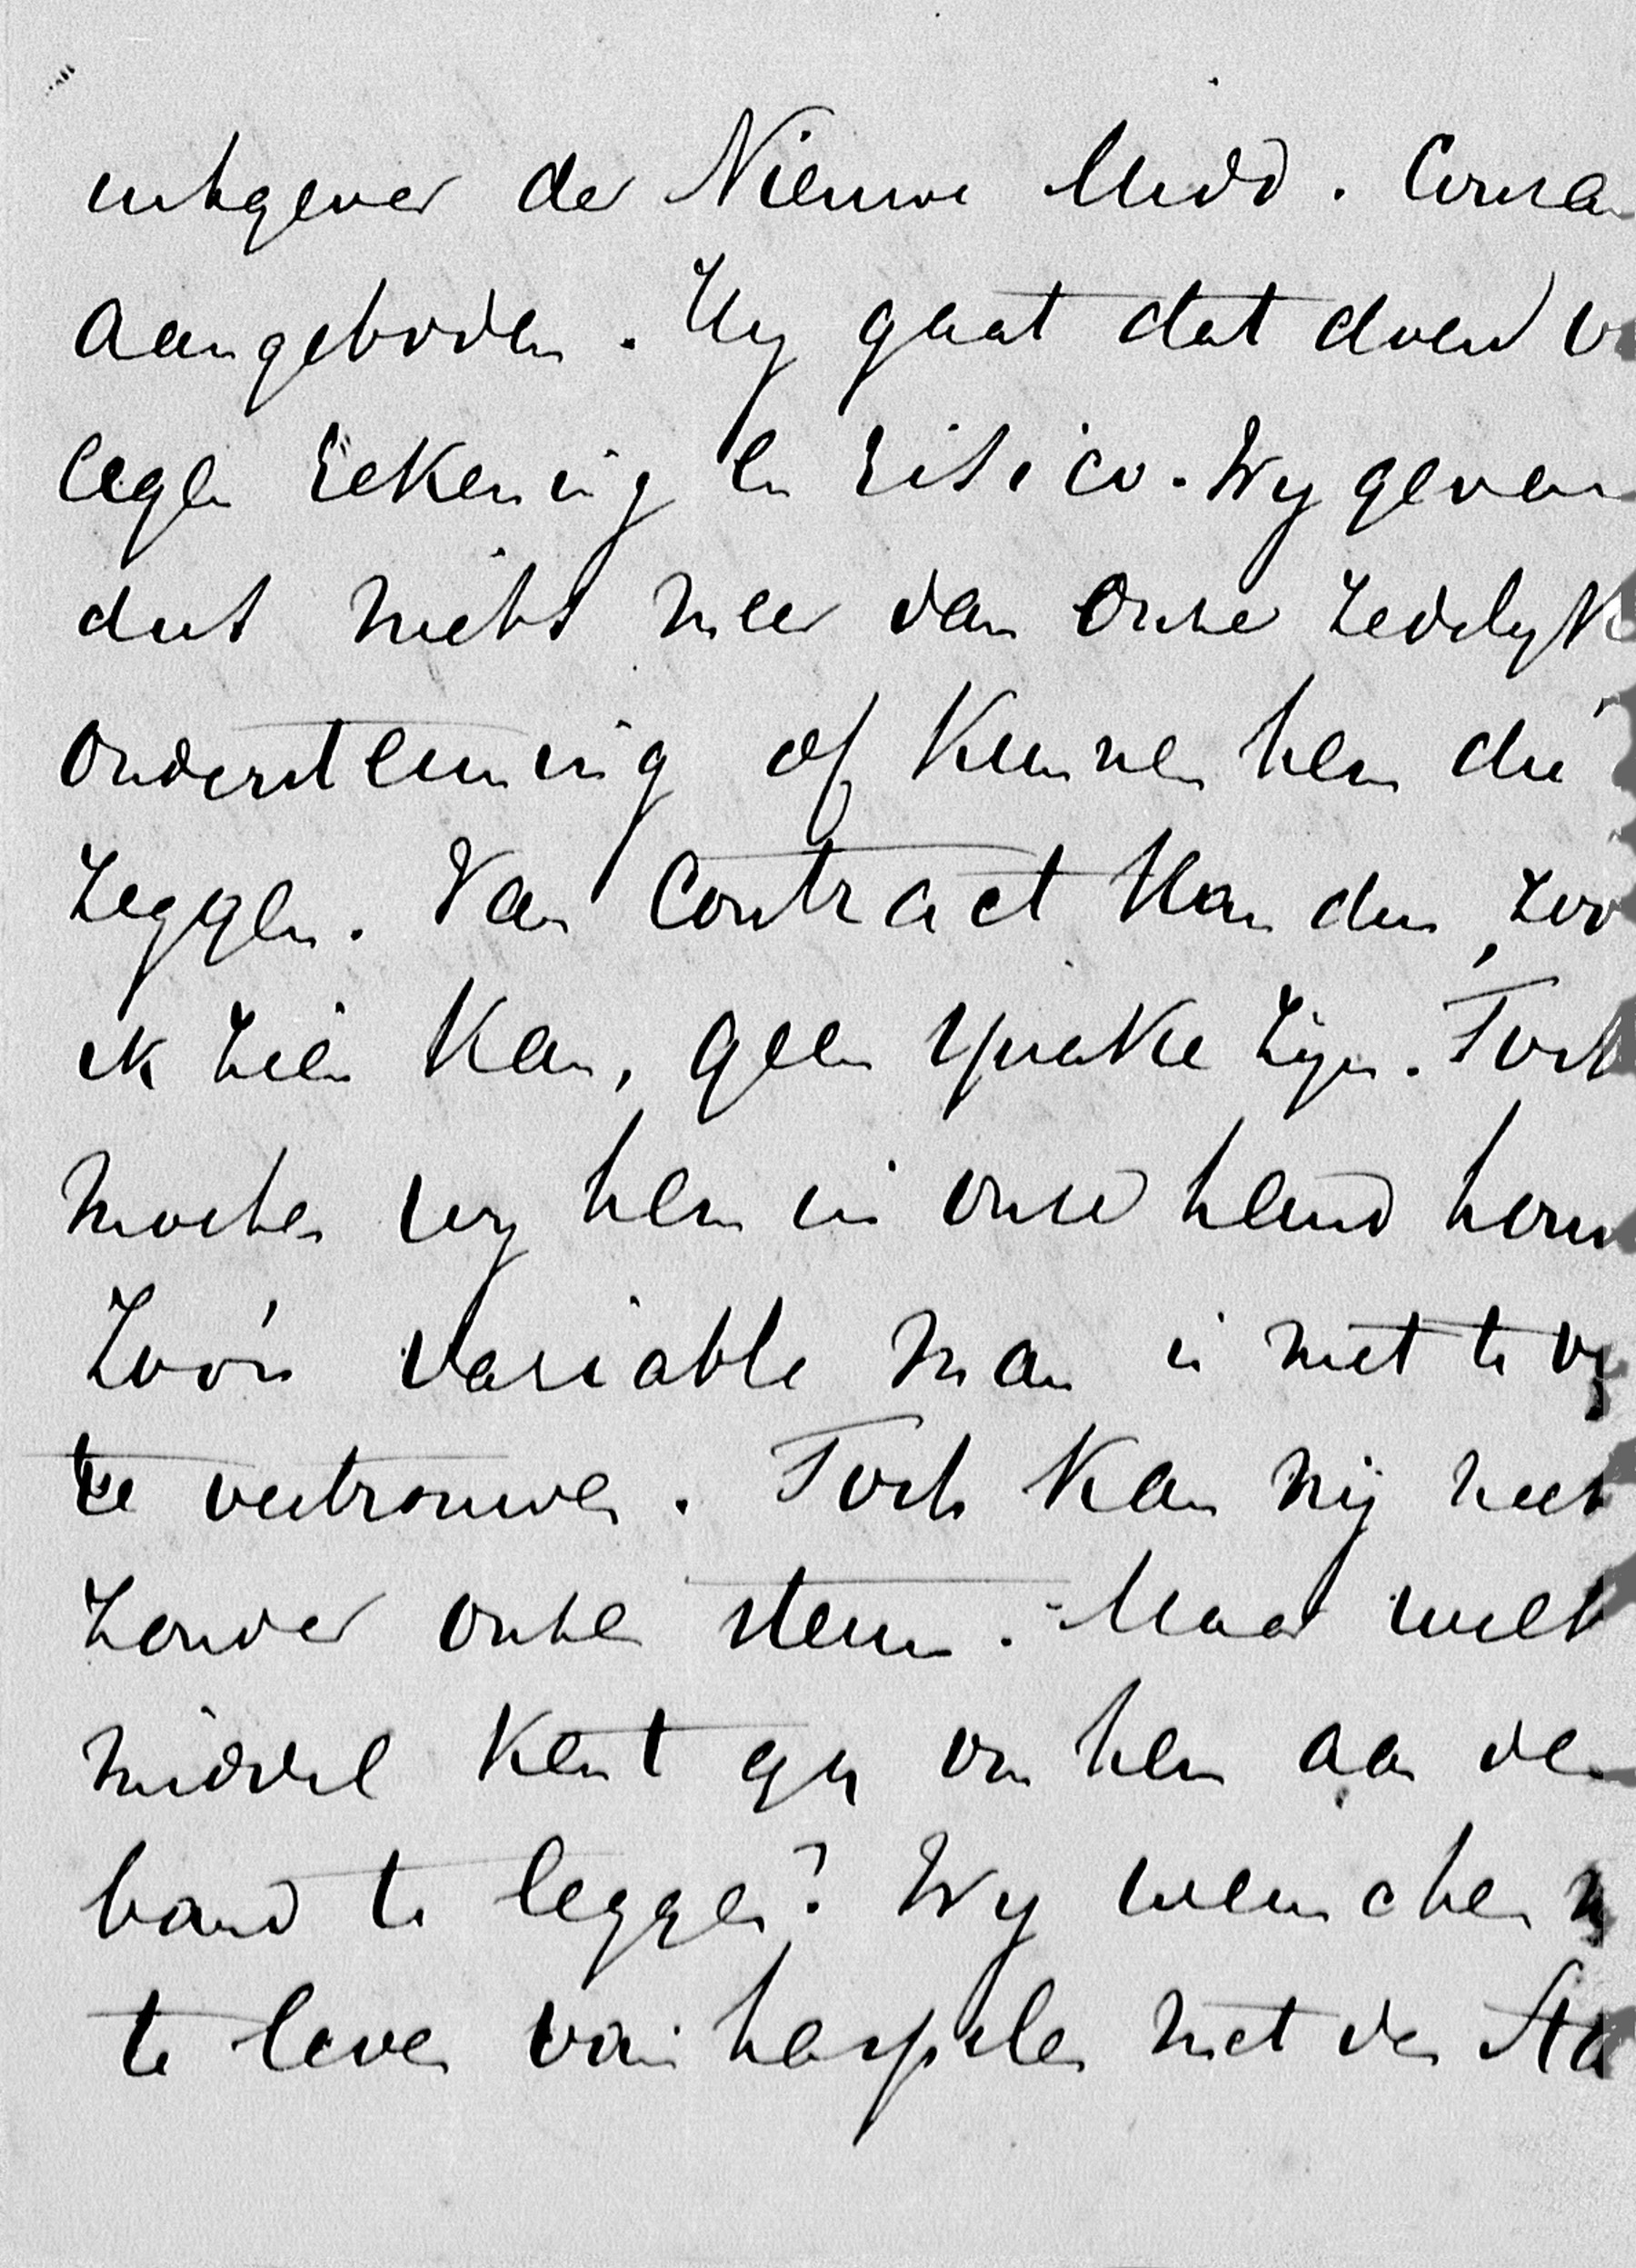 uitgever der Nieuwe Midd. Coura
aangeboden. Hy gaat dat doen v
eegen rekening en risico. Wy geven
dus niets meer dan onze zedelyk
ondersteuning of kunnen hem die
zeggen. Van Contract kan dus, zoo
ik zien kan, geen sprake zijn. Toch
moeten wy hem in onze hand hou
Zoo'n variable man is niet te v
te vertrouwen. Toch kan hij niet
zonder onzen steun. Maar welk
middel kent gy om hem aan den
band te leggen? Wy wenschen
te leven van haspelen met den Sta